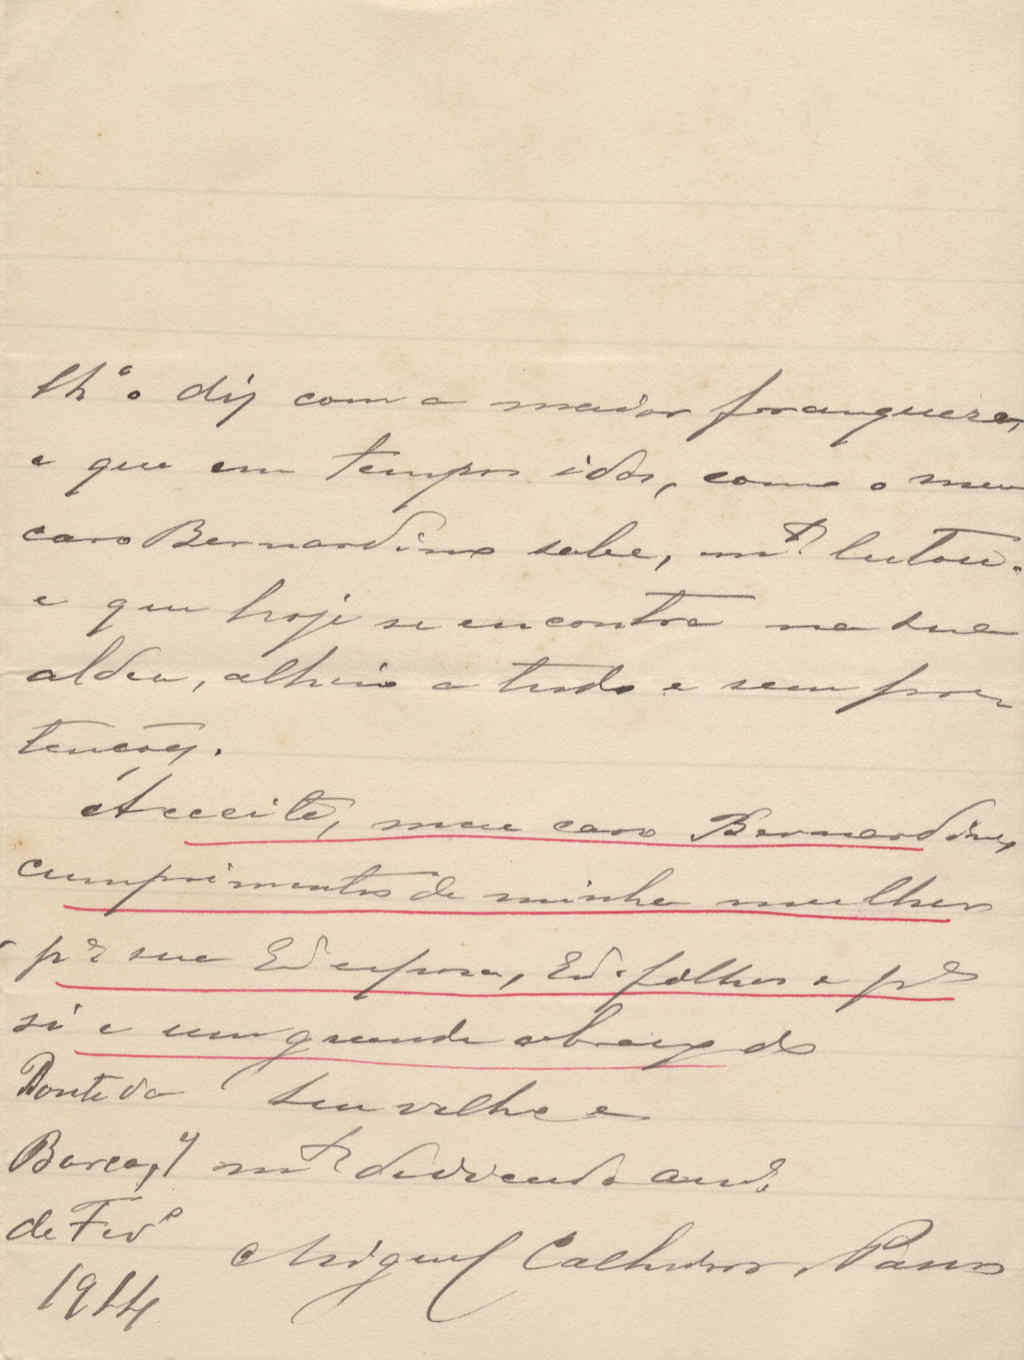 lh'o diz com a maior franqueza,
e que em tempos idos, como o meu
caro Bernardino sabe, mto lutou.
e que hoje se encontra na sua
aldea, alheio a tudo e sem pre-
tenções.
Acceite, meu caro Bernardino,
cumprimentos de minha mulher
pa sua Esposa, filhos e pa
si e um grande abraço do
Ponte da seu velho e
Barca, mto am.º
de Fevº
1914 Miguel